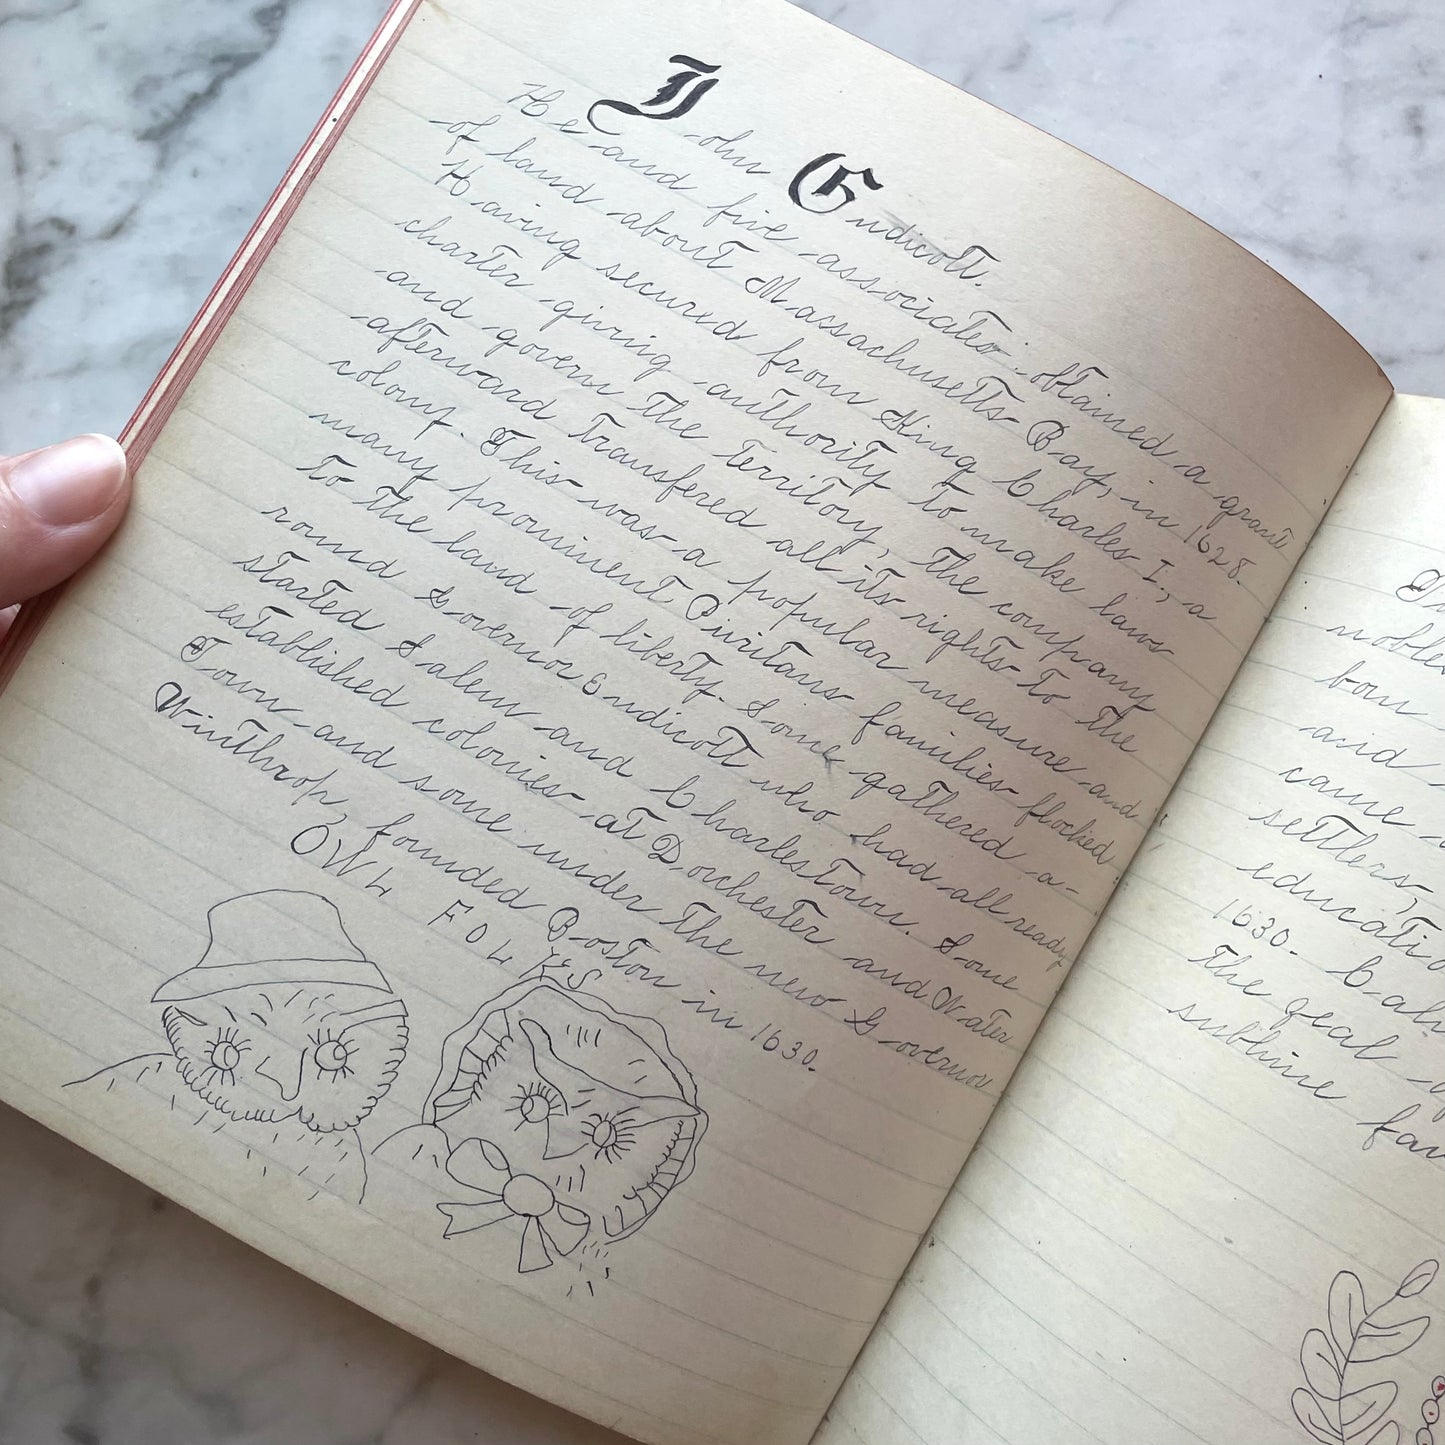 John Endicott.
He and five associates obtained a grant
of land about Massachusetts Bay, in 1628.
Having secured from King Charles I, a
charter giving authority to make laws
and govern the territory, the company
afterward transfered all its rights to the
colony. This was a popular measure and
many prominent Puritans families flocked
to the land of liberty. Some gathered a-
round Governor Endicott who had all ready
started Salem and Charlestown. Some
established colonies at Dorchester and Water
Town and some under the new Governor
Winthrop, founded Boston in 1630.
OWL FOLKS
bon
and
came
settlers,
1630.
the zeal
sublime